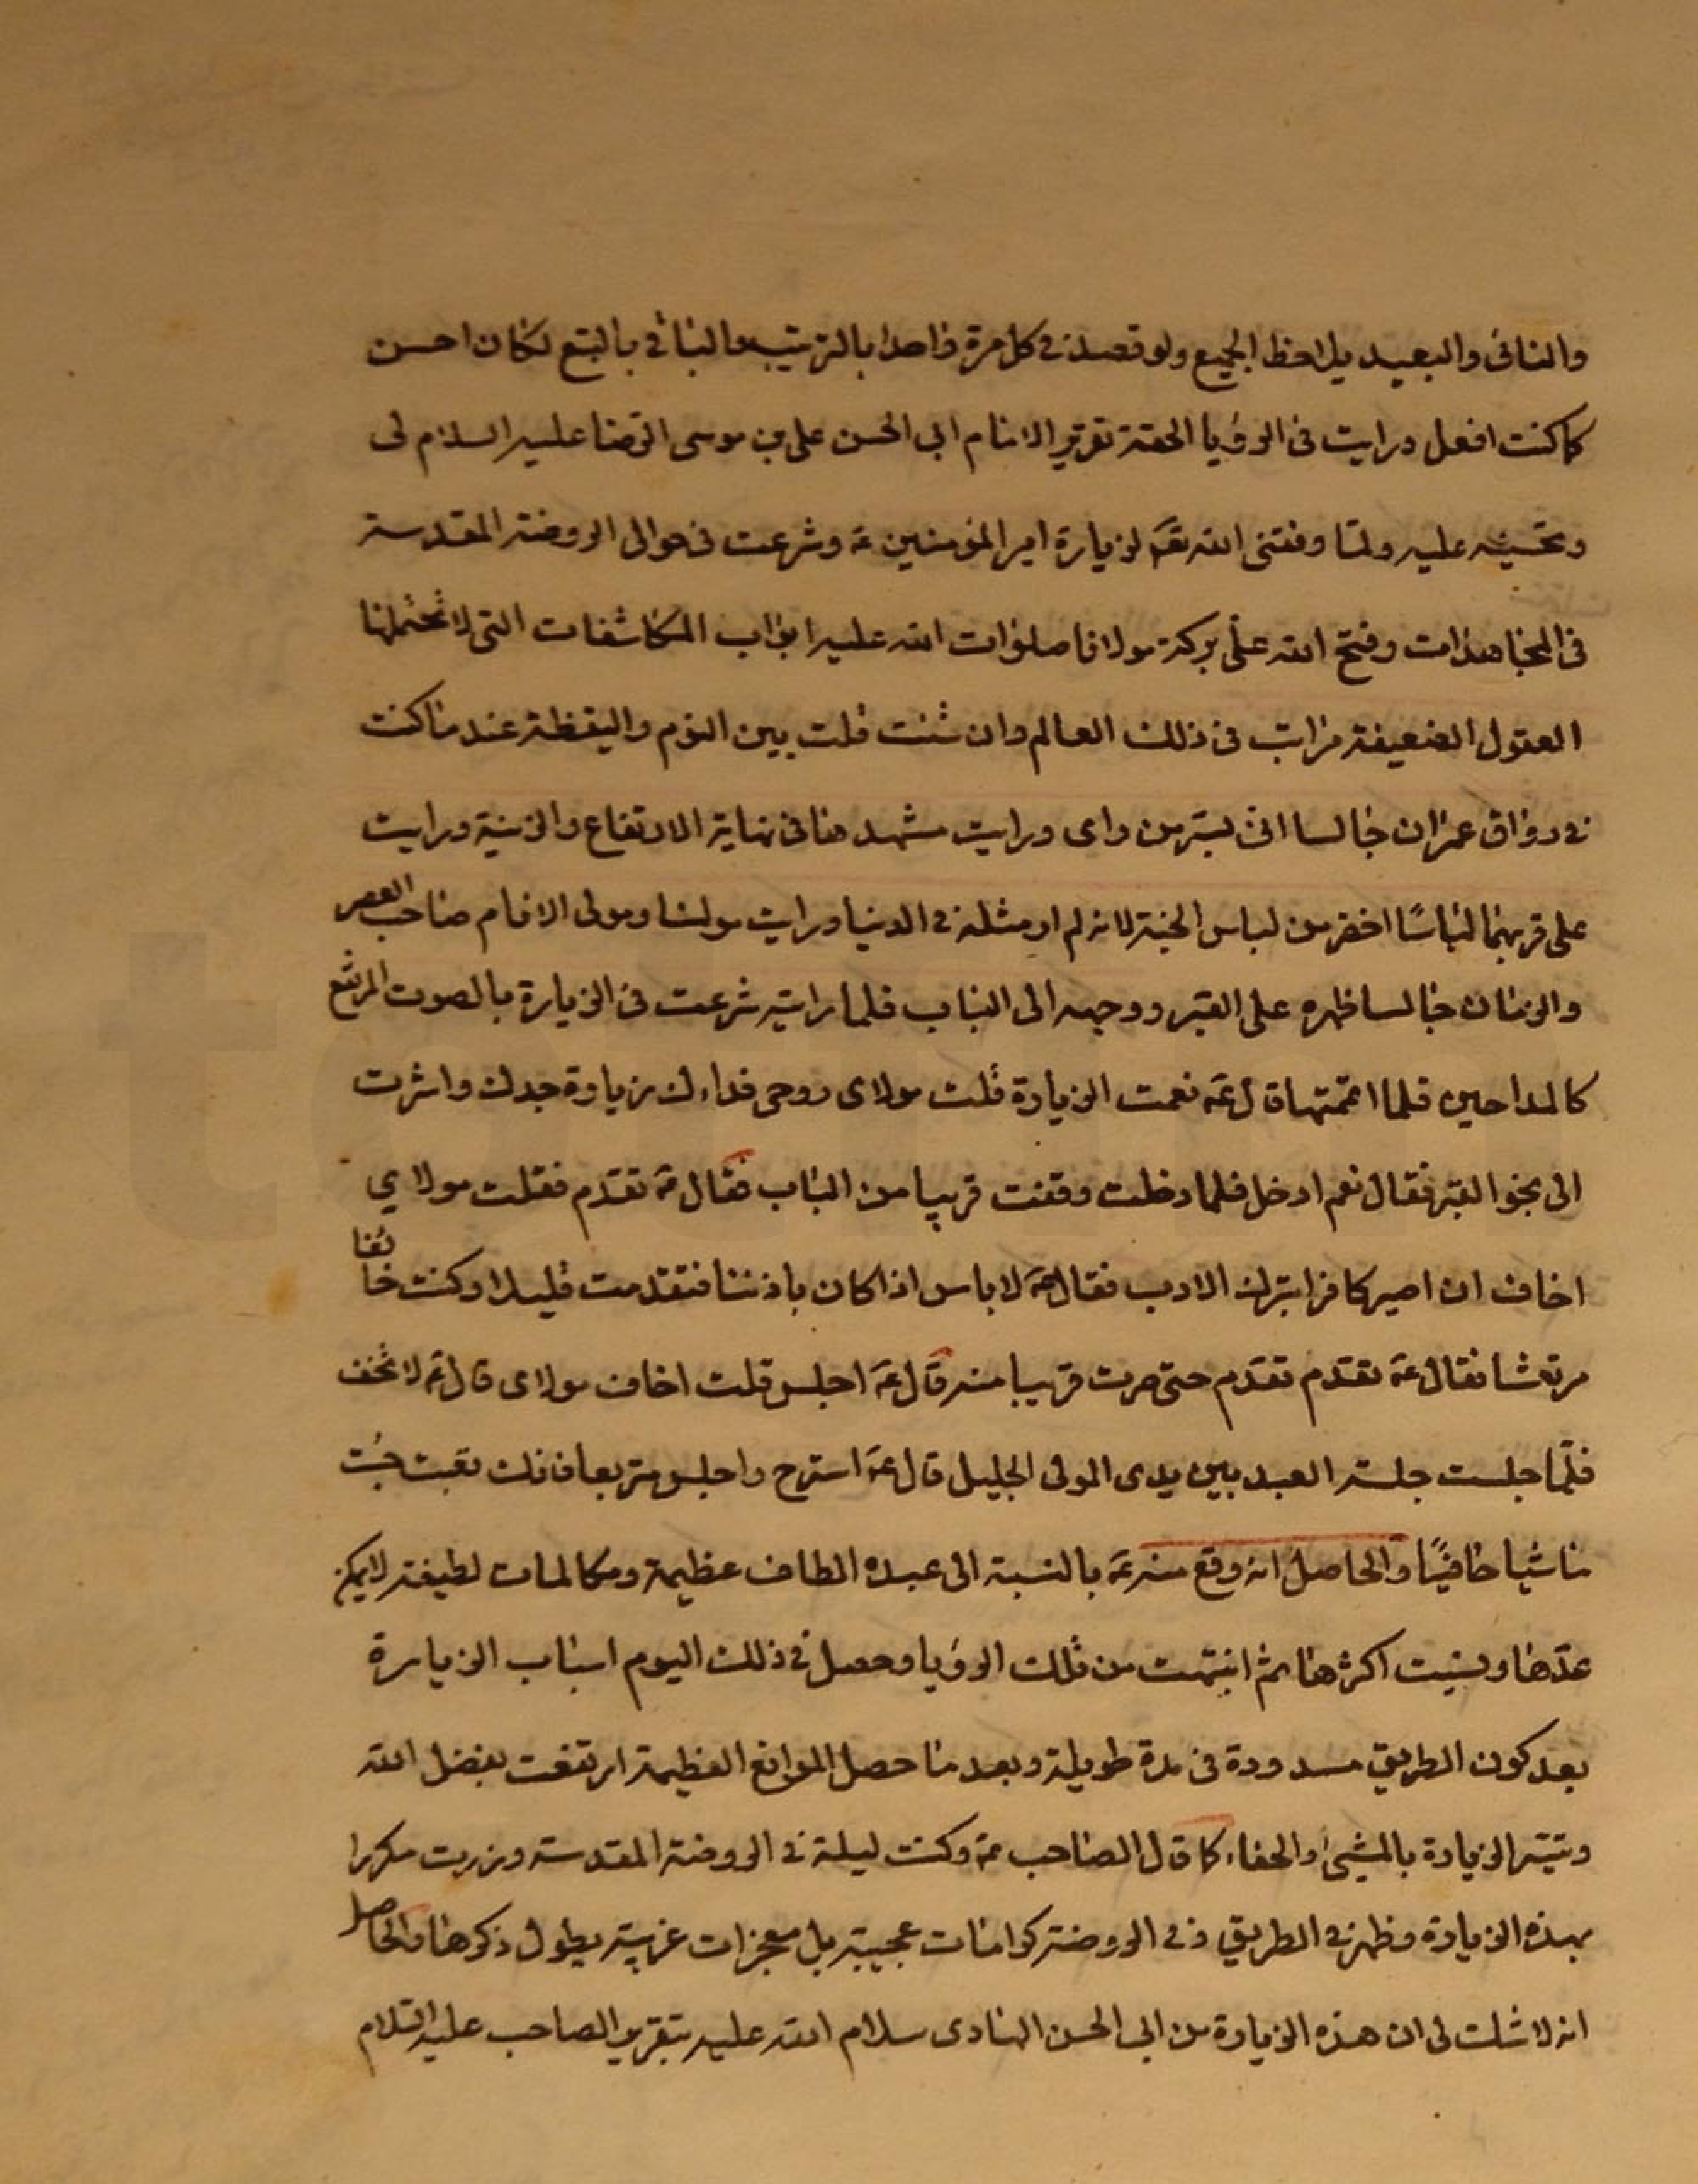 والنائى والبعيد يلاحظ الجميع ولو قصد فى كل مرة واحدا بالترتيب والباقى بالتبع لكان احسن
كما كنت افعل ورايت فى الرؤيا الحقة تقرير الامام ابى الحسن على بن موسى الرضا عليه السلام لى
وتحسينه عليه ولما وفقنى الله تعَ لزيارة امير المؤمنين عَ وشرعت فى حوالى الروضة المقدسة
فى المجاهدات وفتح الله علىّ ببركة مولانا صلوات الله عليه ابواب المكاشفات التى لا تحتملها
العقول الضعيفة رايت فى ذلك العالم وان شئت قلت بين النوم واليقظة عند ما كنت
فى رواق عمران جالسا انى بسر من راى ورايت مشهدهما فى نهاية الارتفاع والزينة ورايت
على قبريهما لباسًا اخضر من لباس الجنة لانه لم ار مثله فى الدنيا ورايت مولنا ومولى الانام صاحب العصر
والزمان جالسا ظهره على القبر ووجهه الى الباب فلما رايته شرعت فى الزيارة بالصوت المرتفع
كالمداحين فلما اتممتها قال عَ نعمت الزيارة قلت مولاى روحى فداءك زيارة جدك واشرت
الى نحو القبر فقال نعم ادخل فلما دخلت وقفت قريبا من الباب فقال عَ تقدم فقلت مولاي
اخاف ان اصير كافرا بترك الادب فقال عَ لا باس اذا كان باذننا فتقدمت قليلا وكنت خائفا
مرتعشا فقال عَ تقدم تقدم حتى صرت قريبا منه قال عَ اجلس قلت اخاف مولاى قال عَ لا تخف
فلما جلست جلسة العبد بين يدى المولى الجليل قال عَ استرح واجلس متربعا فانك تعبت جئت
ماشيا حافيًا والحاصل انه وقع منه عَ بالنسبة الى عبده الطاف عظيمة ومكالمات لطيفة لا يمكن
عدّها ونسيت اكثرها ثم انتبهت من تلك الرؤيا وحصل فى ذلك اليوم اسباب الزيارة
بعد كون الطريق مسدودة فى مدة طويلة وبعد ما حصل الموانع العظيمة ارتفعت بفضل الله
وتيسر الزيارة بالمشى والحفاء كما قال الصاحب عَ وكنت ليلة فى الروضة المقدسة وزرت مكررا
بهذه الزيارة وظهر فى الطريق وفى الروضة كرامات عجيبة بل معجزات غريبة يطول ذكرها والحاصل
انه لا شك لى ان هذه الزيارة من ابى الحسن الهادى سلام الله عليه بتقرير الصاحب عليه السلام